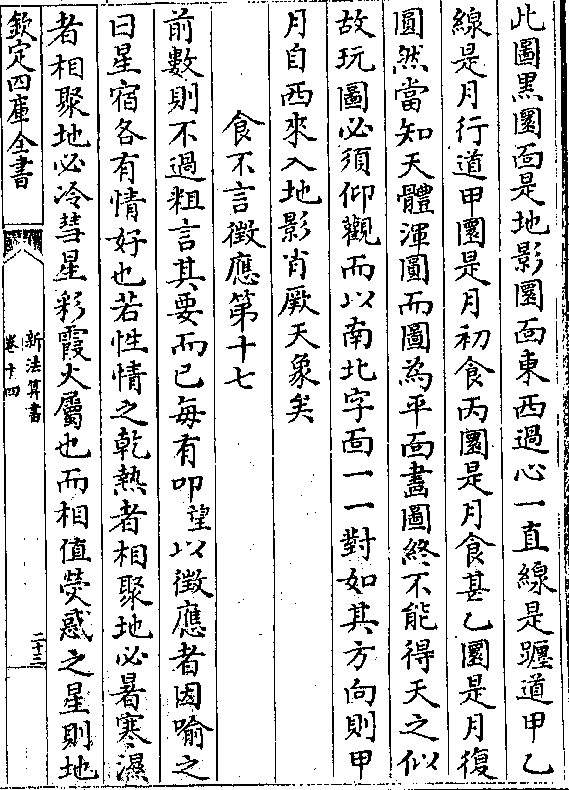 此圖黑圜面是地影圜面東西過心一直線是躔道甲乙
線是月行道甲圜是月初食丙圜是月食甚乙圜是月復
圓然當知天體渾圓而圖為平面畫圖終不能得天之似
故玩圖必須仰觀而以南北字面一一對如其方向則甲
月自西來入地影肖厥天象矣
食不言徵應第十七
前數則不過粗言其要而已每有叩望以徵應者因喻之
曰星宿各有情好也若性情之乾熱者相聚地必暑寒濕
者相聚地必冷彗星彩霞火屬也而相值熒惑之星則地
欽定四庫全書
新法算書
卷十四
二十三